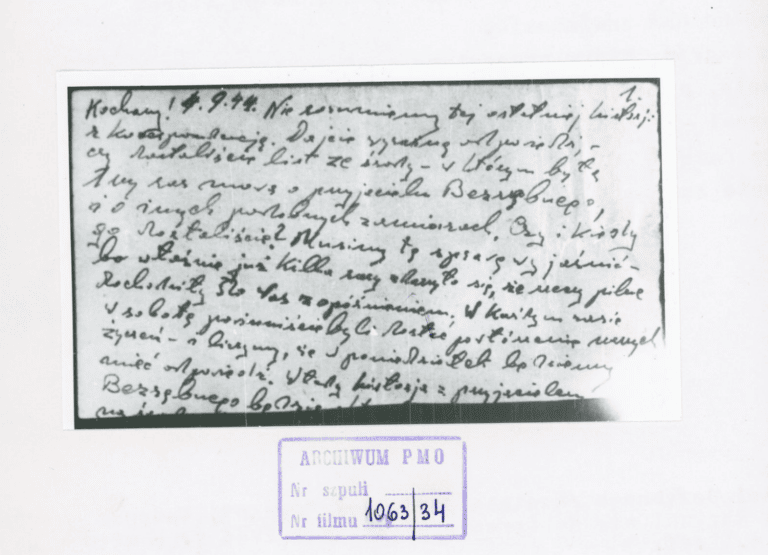 1.
Kochany! 4.9.44. Nie rozumiemy tej ostatniej historji
z korespondencją. Dajcie wyraźną odpowiedź, –
czy dostaliście list ze środy – w którym była
1wszy raz mowa o przyjeździe Bezzębnego,
i o innych podobnych zamiarach. Czy i kiedy
go dostaliście? Musimy tę sprawę wyjaśnić –
bo właśnie już kilka razy zdarzyło się, że rzeczy pilne
dochodziły do Was z opóźnieniem. W każdym razie
w sobotę powinniście byli dostać powtórzenie naszych
życzeń – i liczymy, że w poniedziałek będziemy
mieć odpowiedź. Wtedy historja z przyjazdem
Bezzębnego będzie
ARCHIWUM PMO
Nr szpuli
Nr filmu 1063/34